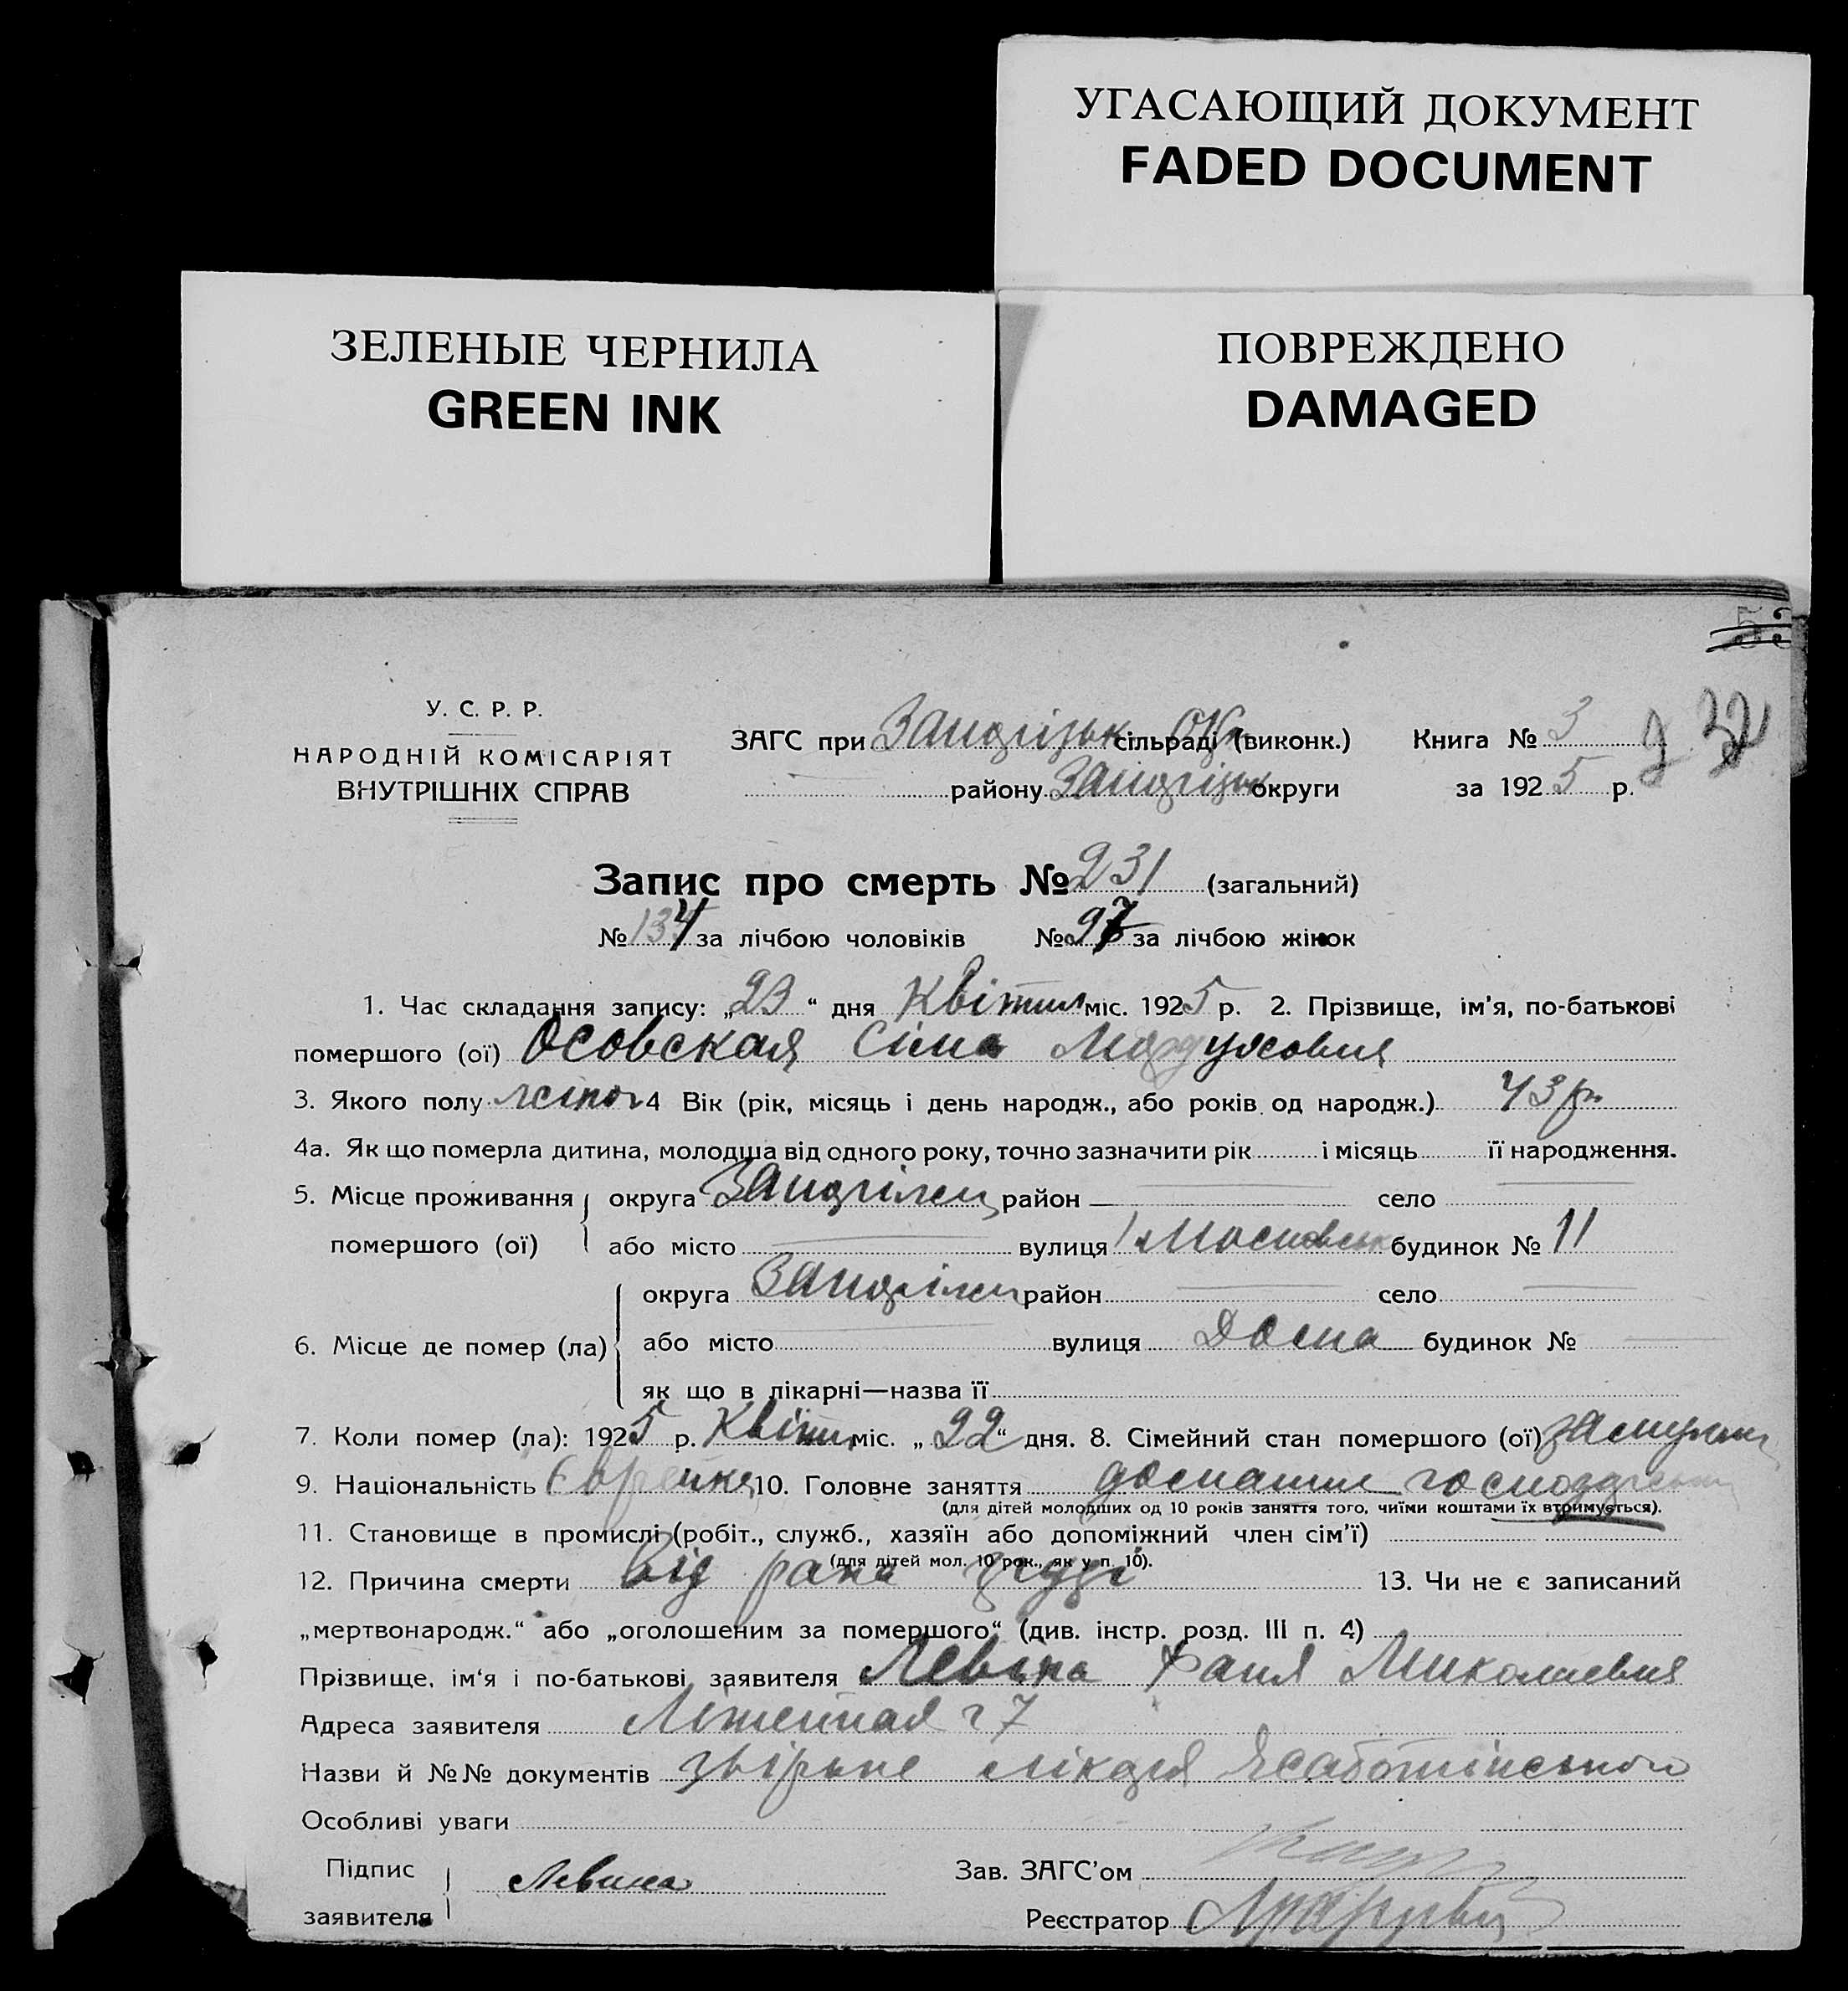 УГАСАЮЩИЙ ДОКУМЕНТ
FADED DOCUMENT
ЗЕЛЕНЫЕ ЧЕРНИЛА
GREEN INK
ПОВРЕЖДЕНО
DAMAGED
У. С. Р. Р.
НАРОДНІЙ КОМІСАРІЯТ
ВНУТРІШНІХ СПРАВ
ЗАГС при сільраді (виконк.)
району округи
Книга № 3
за 1925 р.
Запис про смерть № 231 (загальний)
№ 134 за лічбою чоловіків № 97 за лічбою жінок
1. Час складання запису: „23“ дня Квітня міс. 1925 р. 2. Прізвище, ім'я, по-батькові
помершого (ої) Осовская Сіма Мордуховна
3. Якого полу жіноч 4 Вік (рік, місяць і день народж., або років од народж.) 43 р.
4а. Як що померла дитина, молодша від одного року, точно зазначити рік і місяць її народження.
5. Місце проживання округа район село
помершого (ої) або місто вулиця Московськ будинок № 11
округа район село
6. Місце де помер (ла) або місто вулиця Дома будинок №
як що в лікарні—назва її
7. Коли помер (ла): 1925 р. Квітня міс. „22“ дня. 8. Сімейний стан помершого (ої) замужня
9. Національність Єврейка 10. Головне заняття домашнє господарство
(для дітей молодших од 10 років заняття того, чиїми коштами їх втримується).
11. Становище в промислі (робіт., служб., хазяїн або допоміжний член сім'ї)
(для дітей мол. 10 рок., як у п. 10).
12. Причина смерти Від рака груді 13. Чи не є записаний
„мертвонародж.“ або „оголошеним за помершого“ (див. інстр. розд. III п. 4)
Прізвище, ім'я і по-батькові заявителя Левіна Фаня Миколаевна
Адреса заявителя 7
Назви й №№ документів лікаря Жаботінського
Особливі уваги
Підпис
заявителя Левина
Зав. ЗАГС'ом
Реєстратор